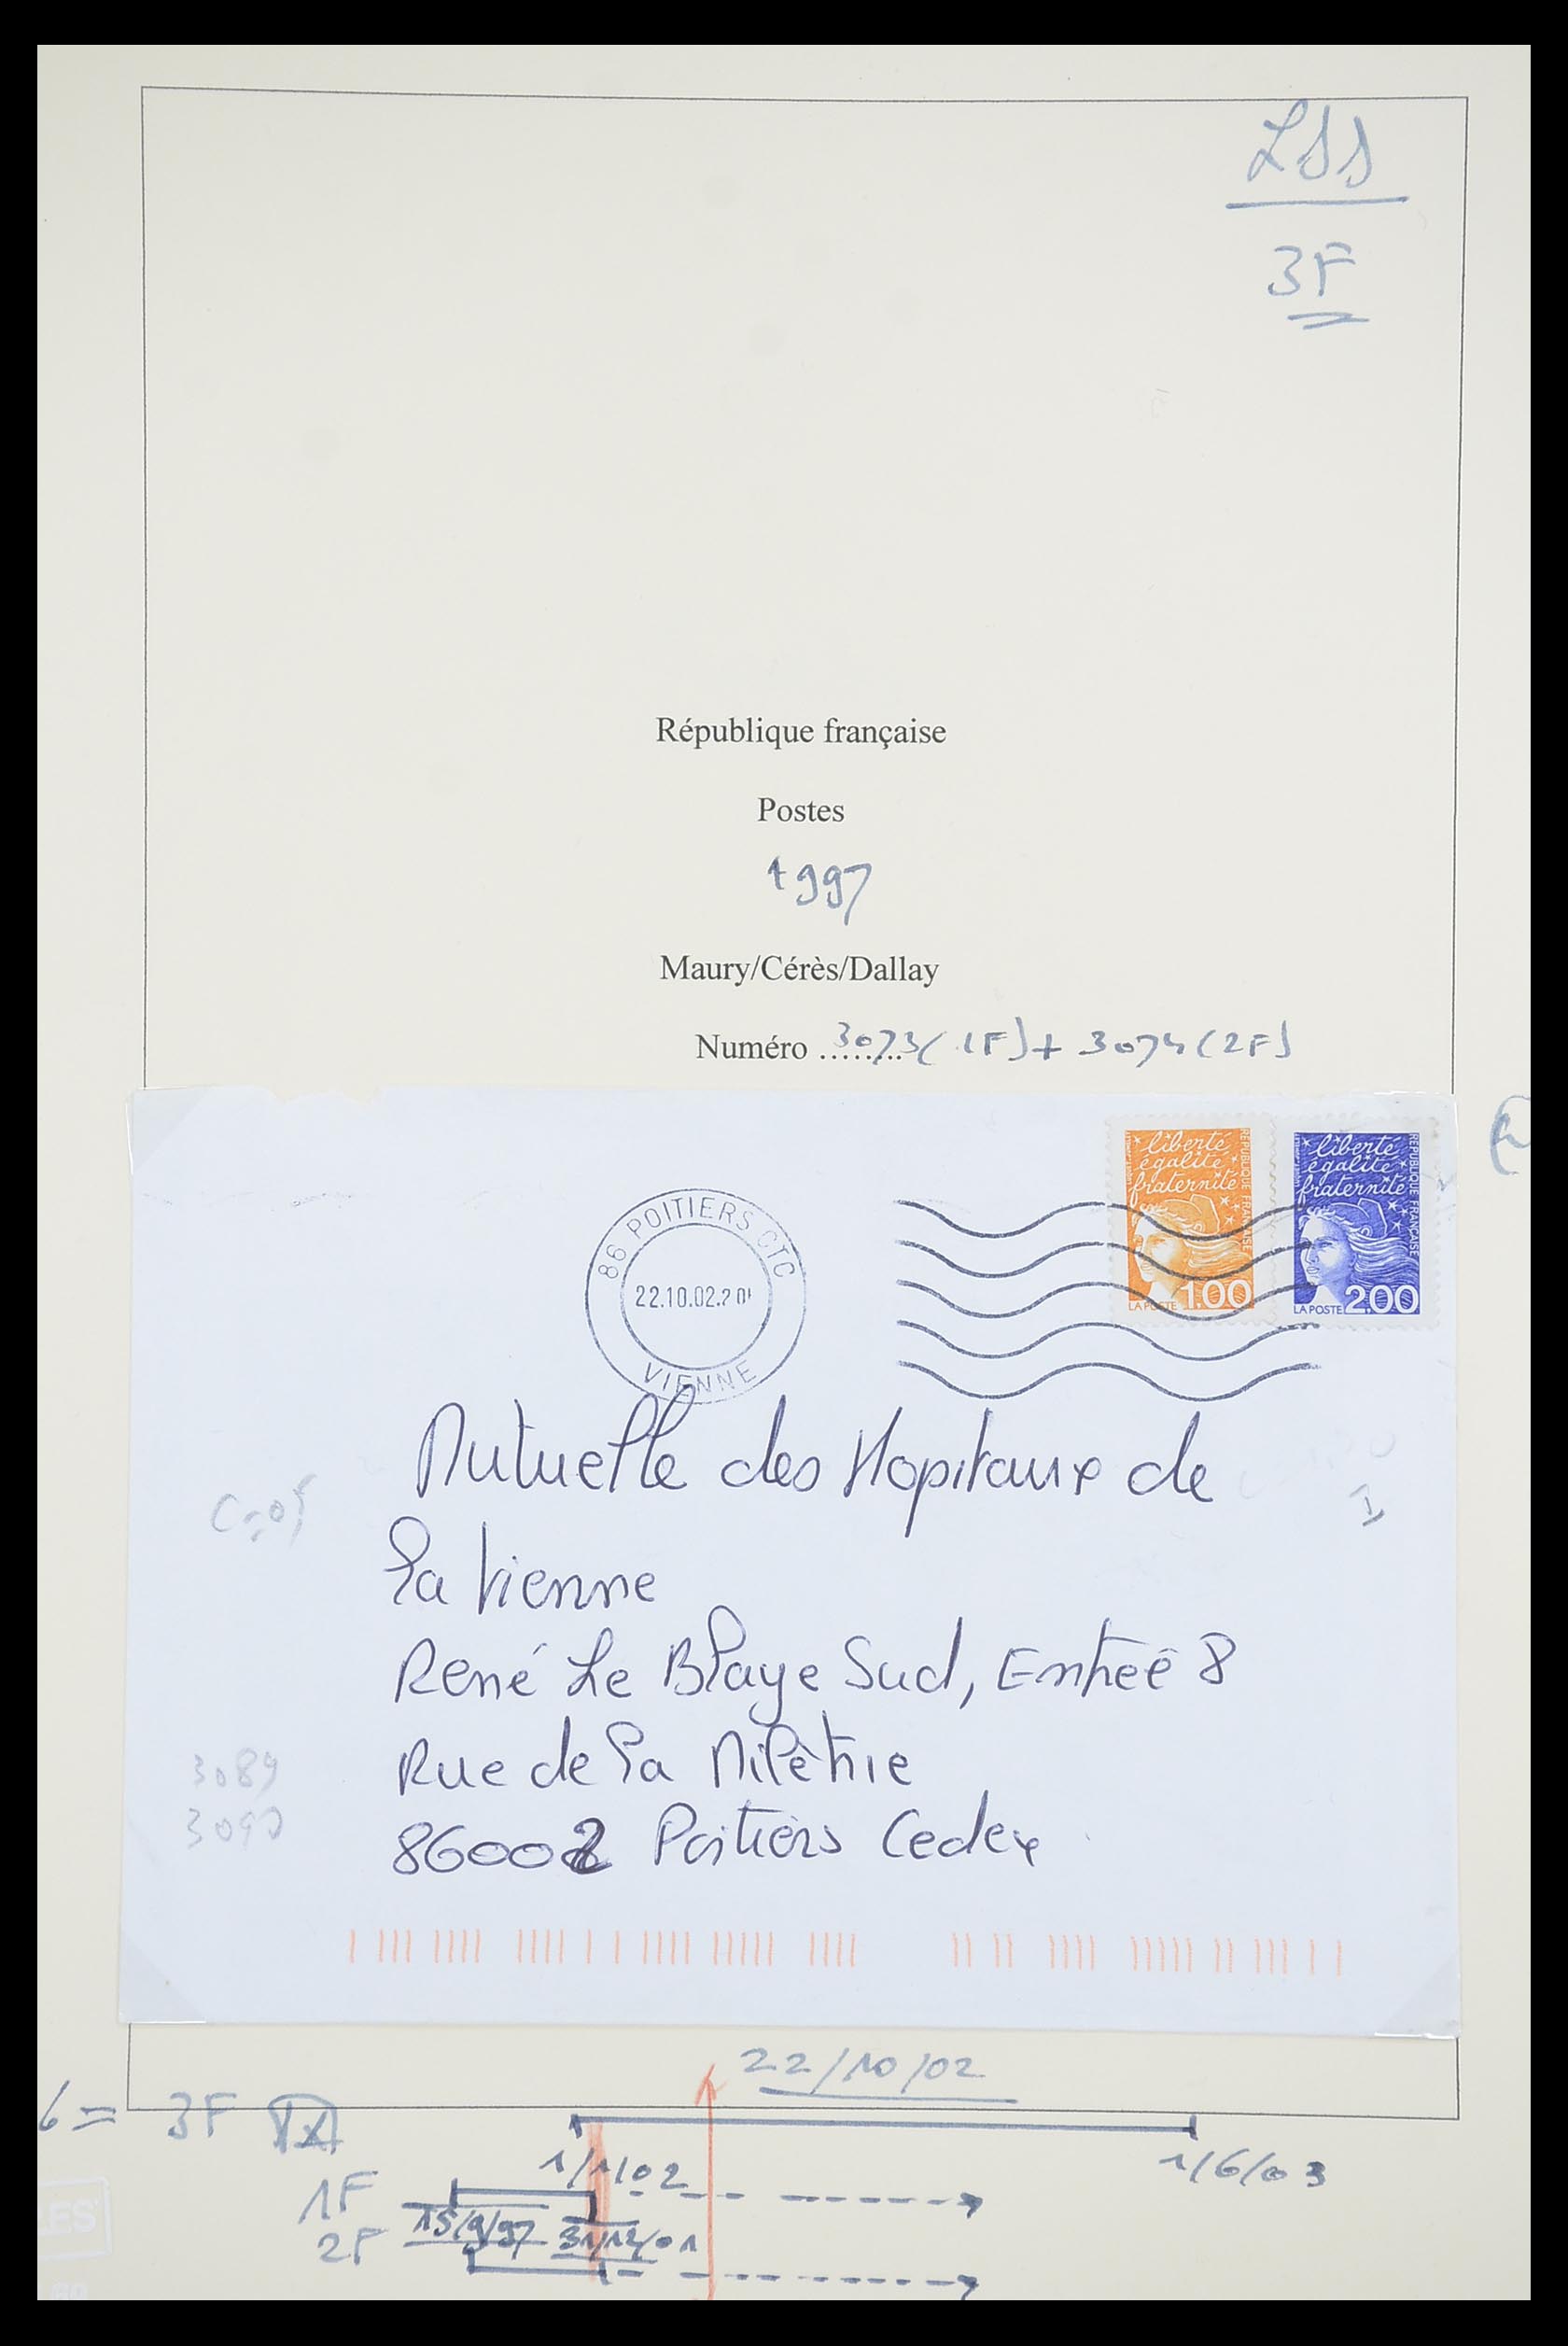 LSS
3F
République française
Postes
1997
Maury/Cérès/Dallay
Numéro ........ 3073 (1F) + 3074 (2F)
liberté
égalité
fraternité
RÉPUBLIQUE FRANÇAISE
LA POSTE 1.00
liberté
égalité
fraternité
RÉPUBLIQUE FRANÇAISE
LA POSTE 2.00
86 POITIERS CTC
22.10.02
VIENNE
Mutuelle des Hopitaux de
la Vienne
René Le Blaye Sud, Entrée 8
Rue de la Milètrie
86002 Poitiers Cedex
3089
3090
22/10/02
6 = 3F
1/1/02
1/6/03
1F
15/9/97 31/12/01
2F